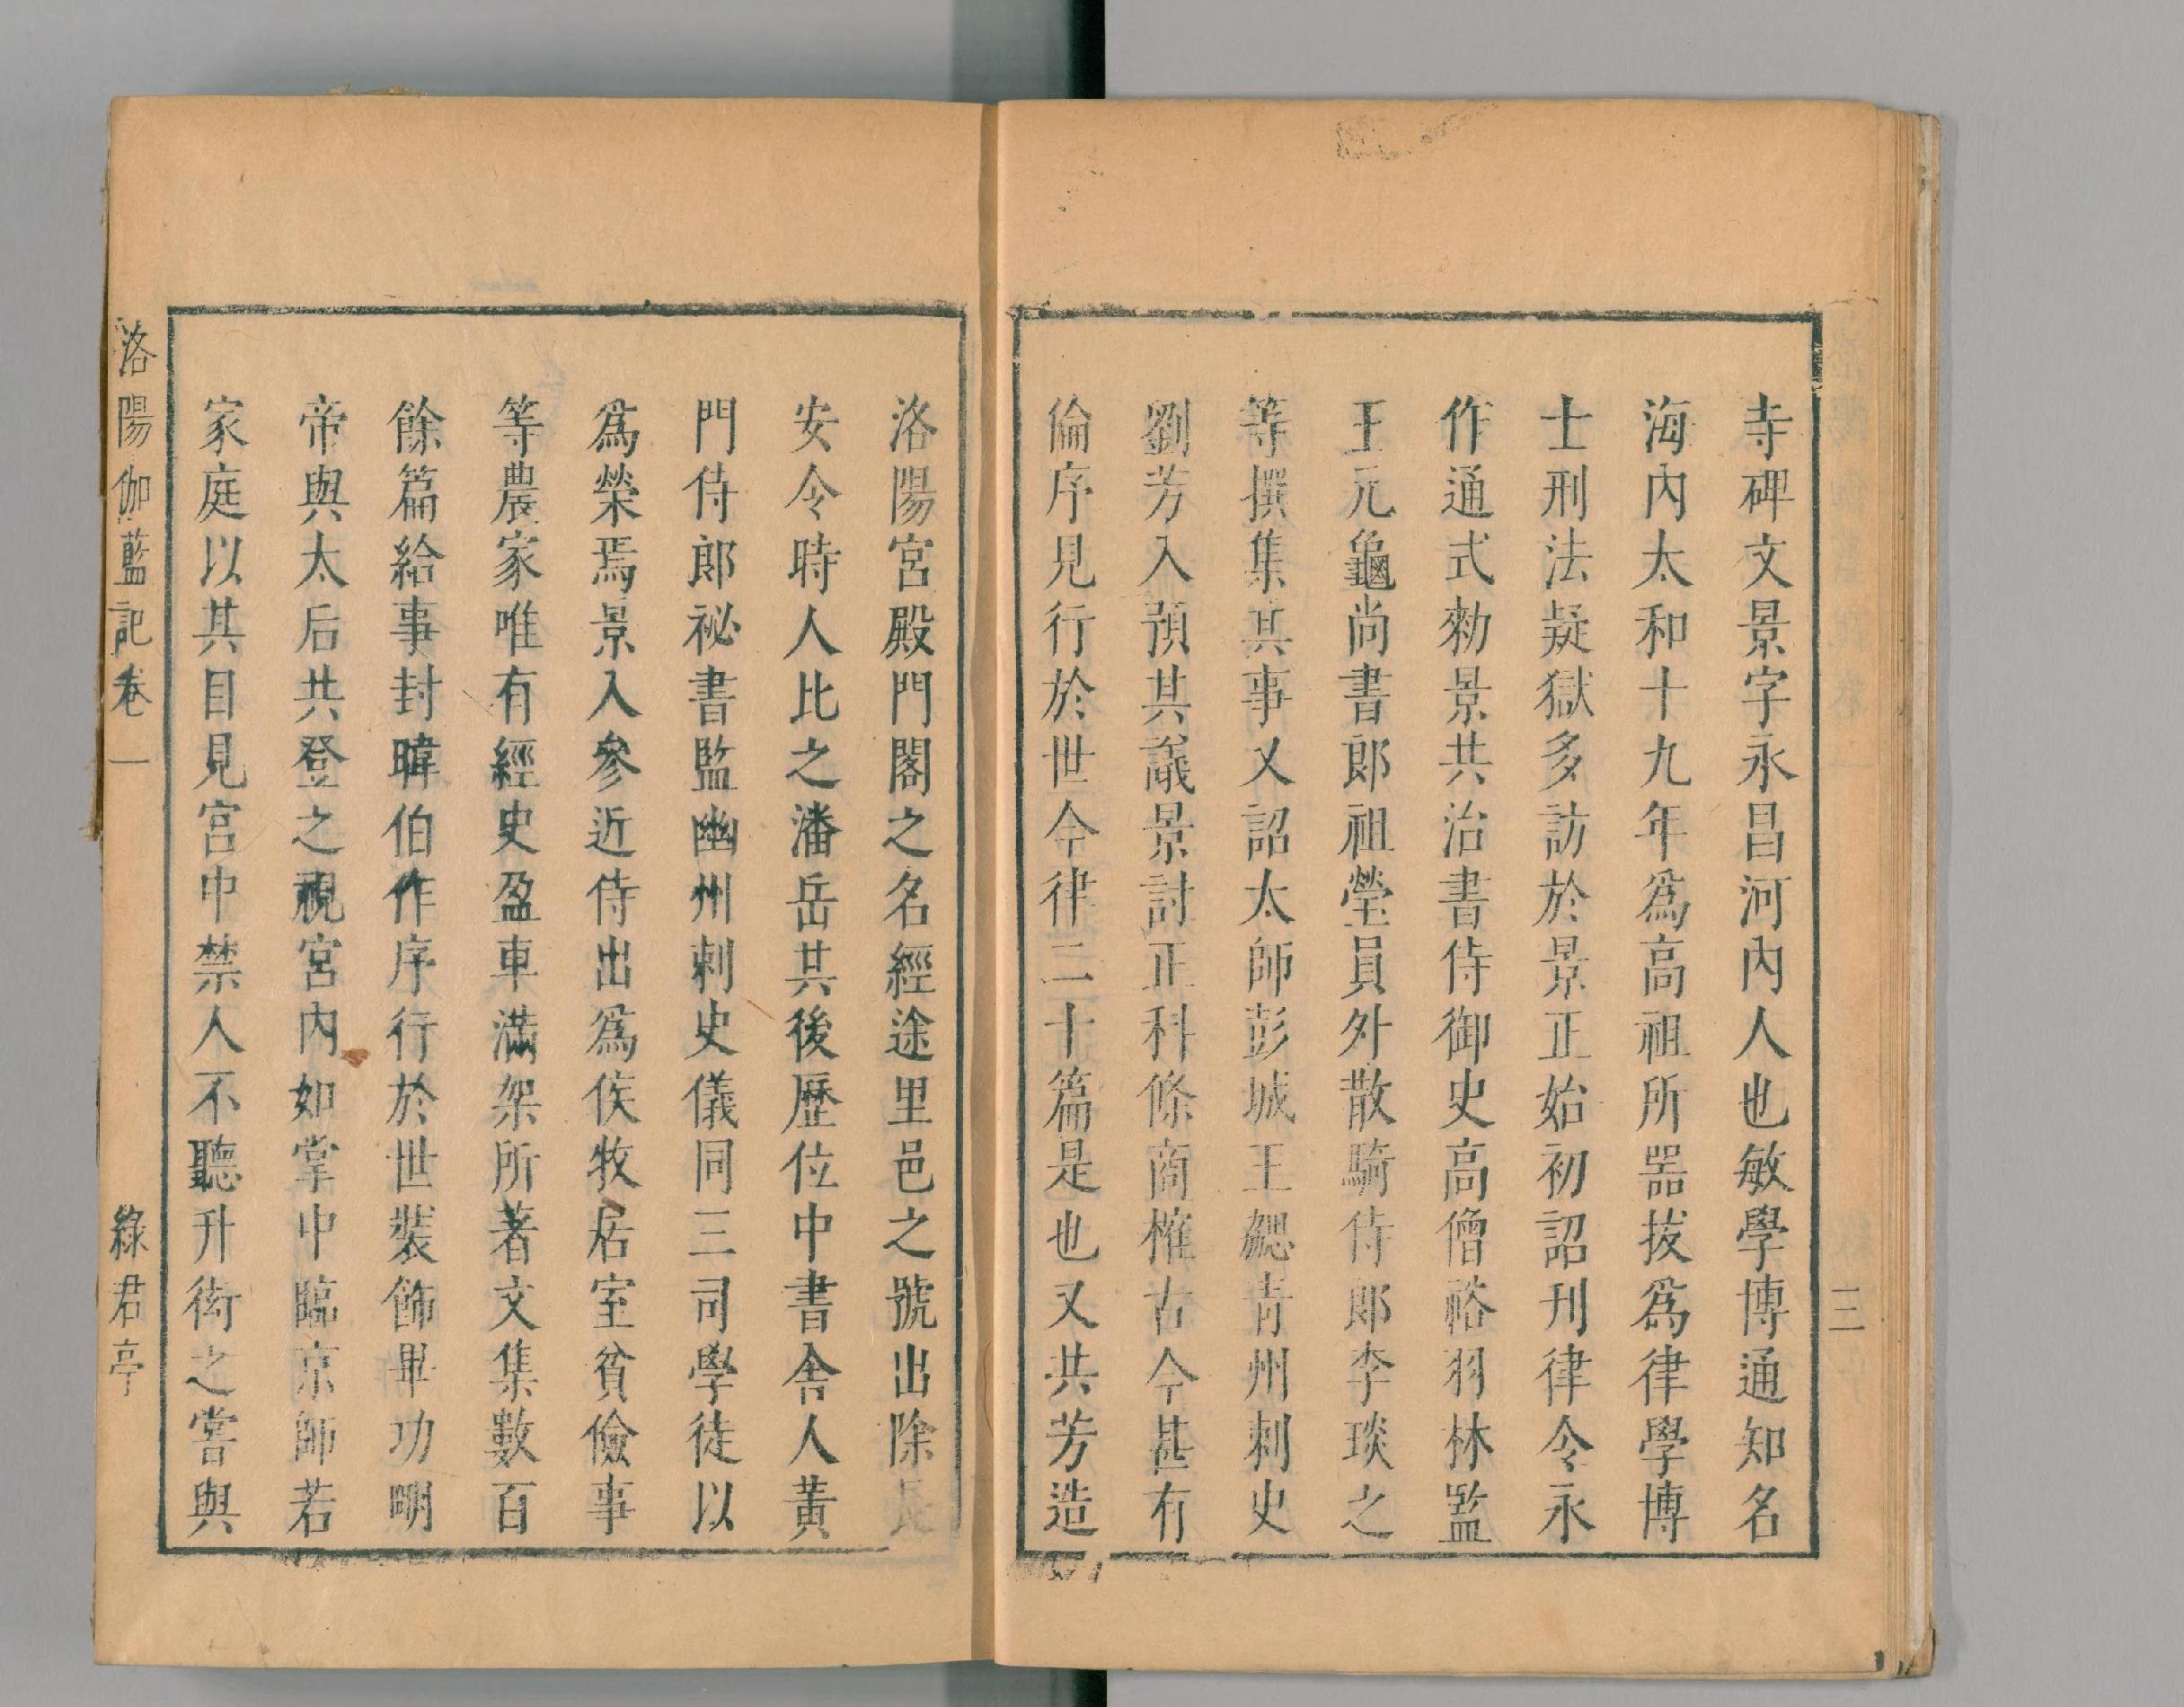 三
寺碑文景字永昌河內人也敏學博通知名
海內太和十九年爲高祖所器拔爲律學博
士刑法疑獄多訪於景正始初詔刊律令永
作通式勑景共治書侍御史高僧裕羽林監
王元龜尚書郎祖瑩員外散騎侍郎李琰之
等撰集其事又詔太師彭城王勰青州刺史
劉芳入預其議景討正科條商榷古今甚有
倫序見行於世今律二十篇是也又共芳造
洛陽宮殿門閣之名經途里邑之號出除長
安令時人比之潘岳其後歷位中書舍人黃
門侍郎祕書監幽州刺史儀同三司學徒以
爲榮焉景入參近侍出爲侯牧居室貧儉事
等農家唯有經史盈車滿架所著文集數百
餘篇給事封暐伯作序行於世裝飾畢功明
帝與太后共登之視宮內如掌中臨京師若
家庭以其目見宮中禁人不聽升衒之嘗與
洛陽伽藍記卷一 綠君亭